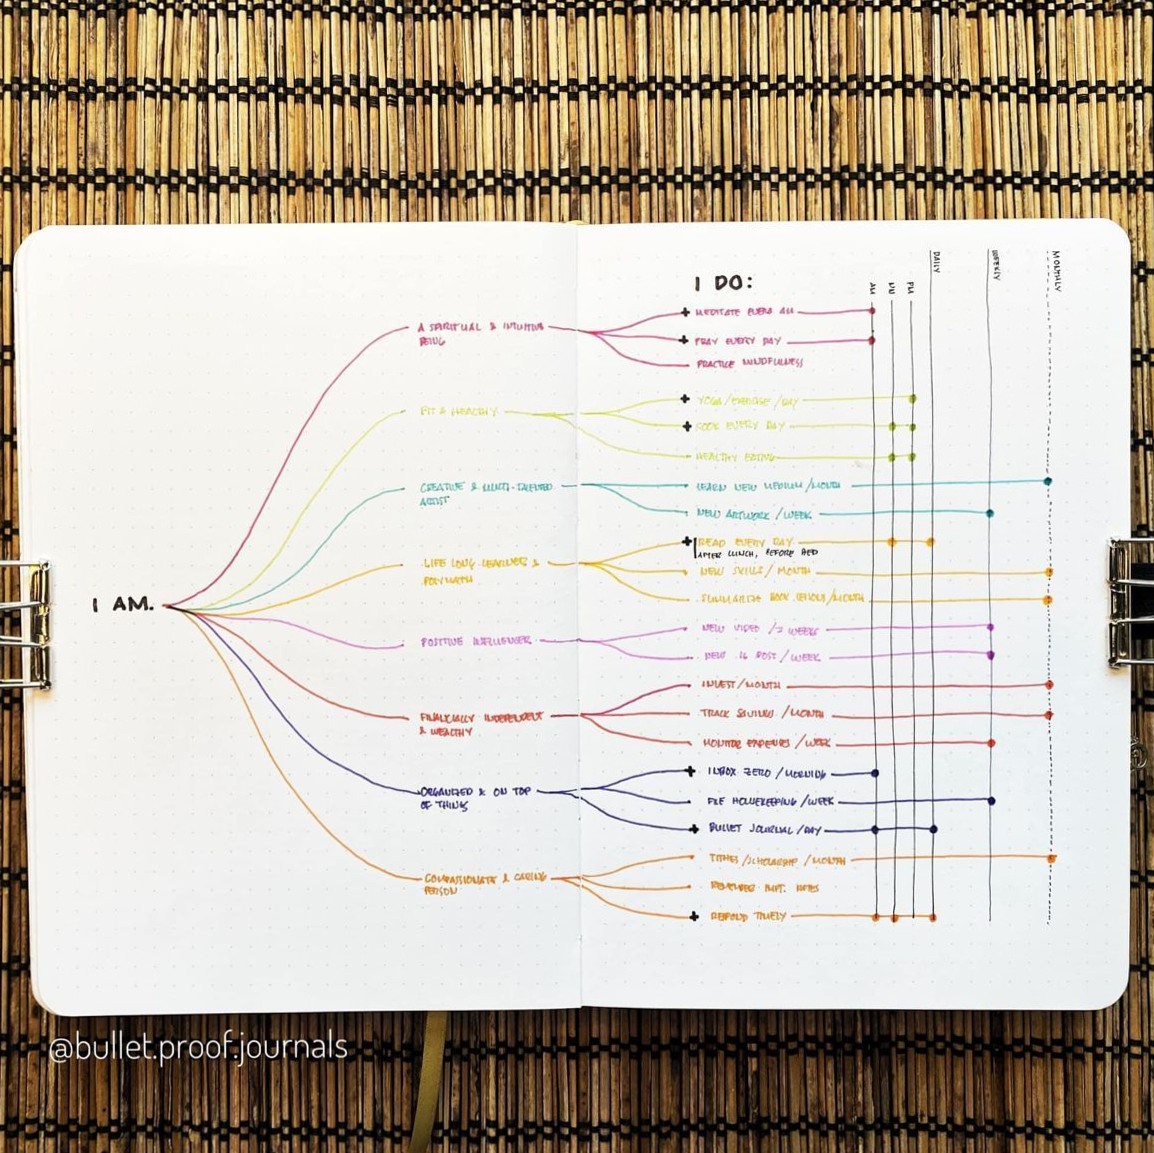 I DO:
DAILY
WEEKLY
MONTHLY
AM
PM
A SPIRITUAL & INTUITIVE
BEING
MEDITATE EVERY AM
PRAY EVERY DAY
PRACTICE MINDFULNESS
FIT & HEALTHY
YOGA/EXERCISE/DAY
COOK EVERY DAY
HEALTHY EATING
CREATIVE & MULTI-TALENTED
ARTIST
LEARN NEW MEDIUM/MONTH
NEW ARTWORK/WEEK
LIFE LONG LEARNER &
POLYMATH
READ EVERY DAY
AFTER LUNCH, BEFORE BED
NEW SKILLS/MONTH
SUMMARIZE BOOK /MONTH
I AM.
POSITIVE INFLUENCER
NEW VIDEO /2 WEEKS
NEW IG POST/WEEK
FINANCIALLY INDEPENDENT
& WEALTHY
INVEST/MONTH
TRACK SAVINGS /MONTH
MONITOR EXPENSES /WEEK
ORGANIZED & ON TOP
OF THINGS
INBOX ZERO/MORNING
FILE HOUSEKEEPING/WEEK
BULLET JOURNAL/DAY
COMPASSIONATE & CARING
PERSON
TITHES/SCHOLARSHIP/MONTH
REMEMBER IMPT.
RESPOND TIMELY
@bullet.proof.journals